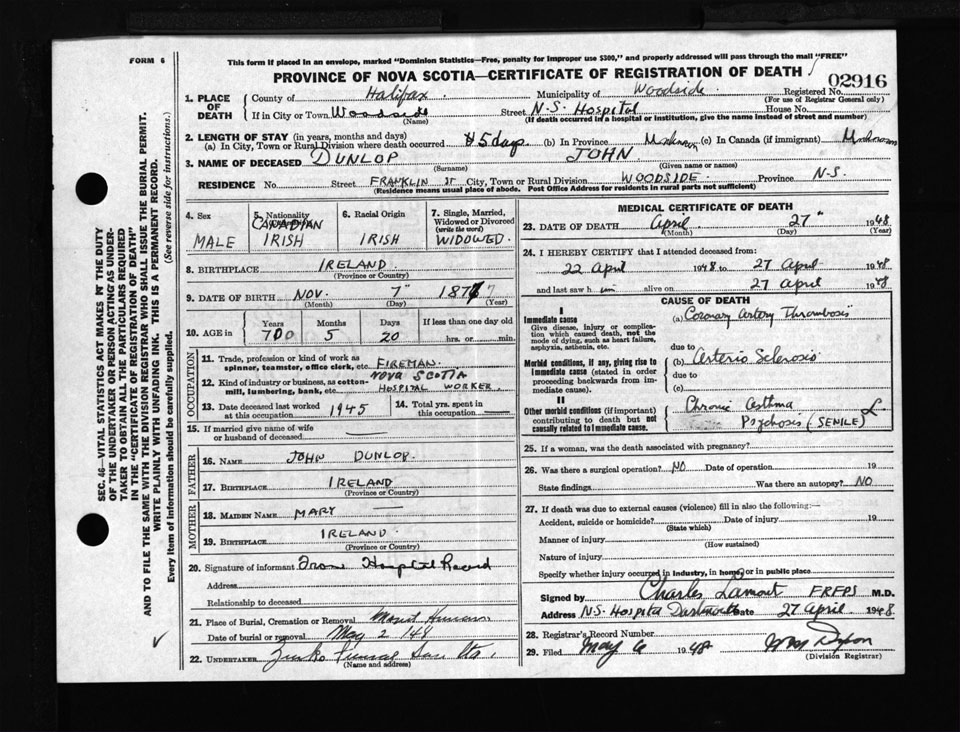 FORM 6
This form if placed in an envelope, marked "Dominion Statistics—Free, penalty for improper use $300," and properly addressed will pass through the mail "FREE"
PROVINCE OF NOVA SCOTIA—CERTIFICATE OF REGISTRATION OF DEATH
02916
1. PLACE OF DEATH
County of Halifax Municipality of Woodside Registered No.
(For use of Registrar General only)
If in City or Town Woodside Street N.S. Hospital House No.
(Name) (If death occurred in a hospital or institution, give the name instead of street and number)
2. LENGTH OF STAY (in years, months and days)
(a) In City, Town or Rural Division where death occurred 5 days (b) In Province Unknown (c) In Canada (if immigrant) Unknown
3. NAME OF DECEASED DUNLOP JOHN
(Surname) (Given name or names)
RESIDENCE No. Street FRANKLIN ST City, Town or Rural Division WOODSIDE Province N.S.
(Residence means usual place of abode. Post Office Address for residents in rural parts not sufficient)
4. Sex
MALE
5. Nationality
CANADIAN
IRISH
6. Racial Origin
IRISH
7. Single, Married, Widowed or Divorced
(write the word)
WIDOWED
8. BIRTHPLACE IRELAND
(Province or Country)
9. DATE OF BIRTH NOV. 7" 1877
(Month) (Day) (Year)
10. AGE in Years Months Days If less than one day old
70 5 20 hrs. or min.
OCCUPATION
11. Trade, profession or kind of work as spinner, teamster, office clerk, etc. FIREMAN
12. Kind of industry or business, as cotton-mill, lumbering, bank, etc. NOVA SCOTIA HOSPITAL WORKER
13. Date deceased last worked at this occupation 1945
14. Total yrs. spent in this occupation
15. If married give name of wife or husband of deceased
FATHER
16. NAME JOHN DUNLOP
17. BIRTHPLACE IRELAND
(Province or Country)
MOTHER
18. MAIDEN NAME MARY
19. BIRTHPLACE IRELAND
(Province or Country)
20. Signature of informant From Hospital Record
Address
Relationship to deceased
21. Place of Burial, Cremation or Removal Mount Hermon
Date of burial or removal May 2 '48
22. UNDERTAKER Zinks Funeral
(Name and address)
MEDICAL CERTIFICATE OF DEATH
23. DATE OF DEATH April 27" 1948
(Month) (Day) (Year)
24. I HEREBY CERTIFY that I attended deceased from:
22 April 1948 to 27 April 1948
and last saw him alive on 27 April 1948
CAUSE OF DEATH
I
Immediate cause
Give disease, injury or complication which caused death, not the mode of dying, such as heart failure, asphyxia, asthenia, etc.
(a) Coronary Artery Thrombosis
due to
Morbid conditions, if any, giving rise to immediate cause (stated in order proceeding backwards from immediate cause).
(b) Arterio Sclerosis
due to
(c)
II
Other morbid conditions (if important) contributing to death but not causally related to immediate cause.
Chronic Asthma
Psychosis (SENILE)
25. If a woman, was the death associated with pregnancy?
26. Was there a surgical operation? NO Date of operation 19
State findings Was there an autopsy? NO
27. If death was due to external causes (violence) fill in also the following:—
Accident, suicide or homicide? Date of injury 19
(State which)
Manner of injury
(How sustained)
Nature of injury
Specify whether injury occurred in industry, in home or in public place
Signed by Charles Lamont FRFPS M.D.
Address N.S. Hospital Dartmouth Date 27 April 1948
28. Registrar's Record Number
29. Filed May 6 1948
(Division Registrar)
SEC. 46—VITAL STATISTICS ACT MAKES IT THE DUTY
OF THE UNDERTAKER OR PERSON ACTING AS UNDER-
TAKER TO OBTAIN ALL THE PARTICULARS REQUIRED
IN THE "CERTIFICATE OF DEATH"
AND TO FILE THE SAME WITH THE DIVISION REGISTRAR WHO SHALL ISSUE THE BURIAL PERMIT.
WRITE PLAINLY WITH UNFADING INK. THIS IS A PERMANENT RECORD.
Every item of information should be carefully supplied. (See reverse side for instructions.)